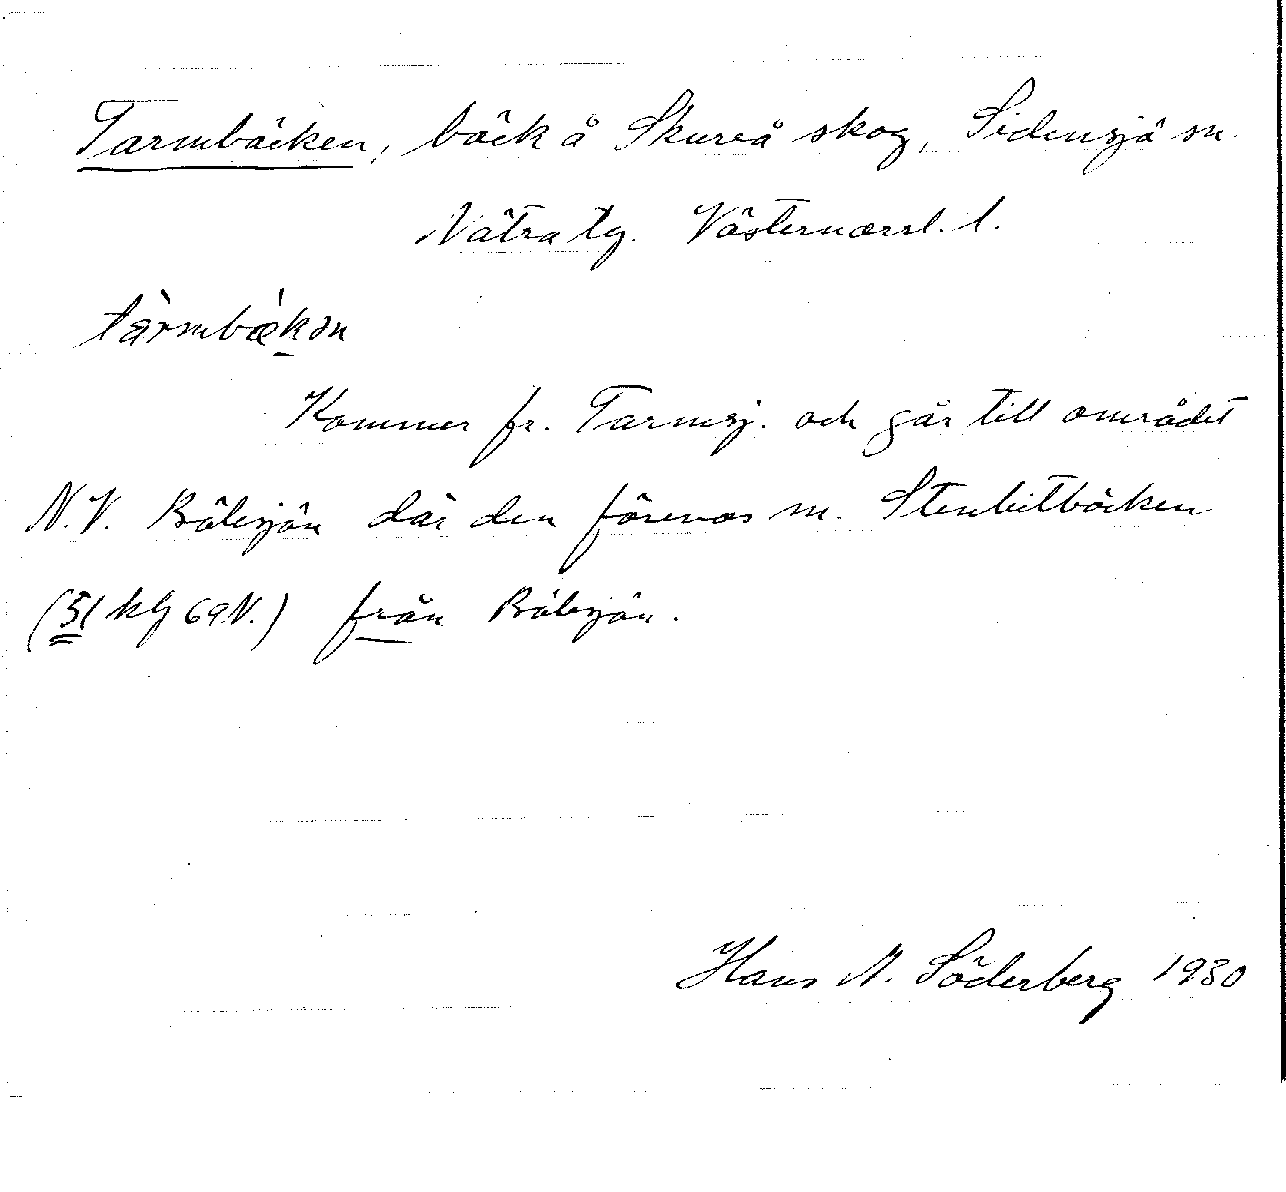 Tarmbäcken, bäck å Skureå skog, Sidensjö sn.
Nätra tg. Västernorrl. l.
tàrmbæ̀kən
Kommer fr. Tarmsj. och går till området
N.V. Bölesjön där den förenas m. Stenbitbäcken
(51 kg 69 N.) från Bölesjön.
Hans N. Söderberg 1930